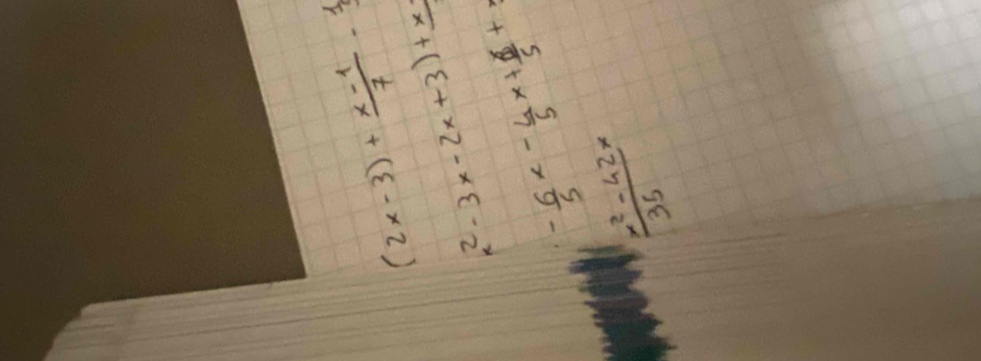 (2x-3)+\frac{x-1}{7}-
x²-3x-2x+3)+\frac{x-
-\frac{6}{5}x-\frac{4}{5}x+\frac{6}{5}+
\frac{x²-42x}{35}